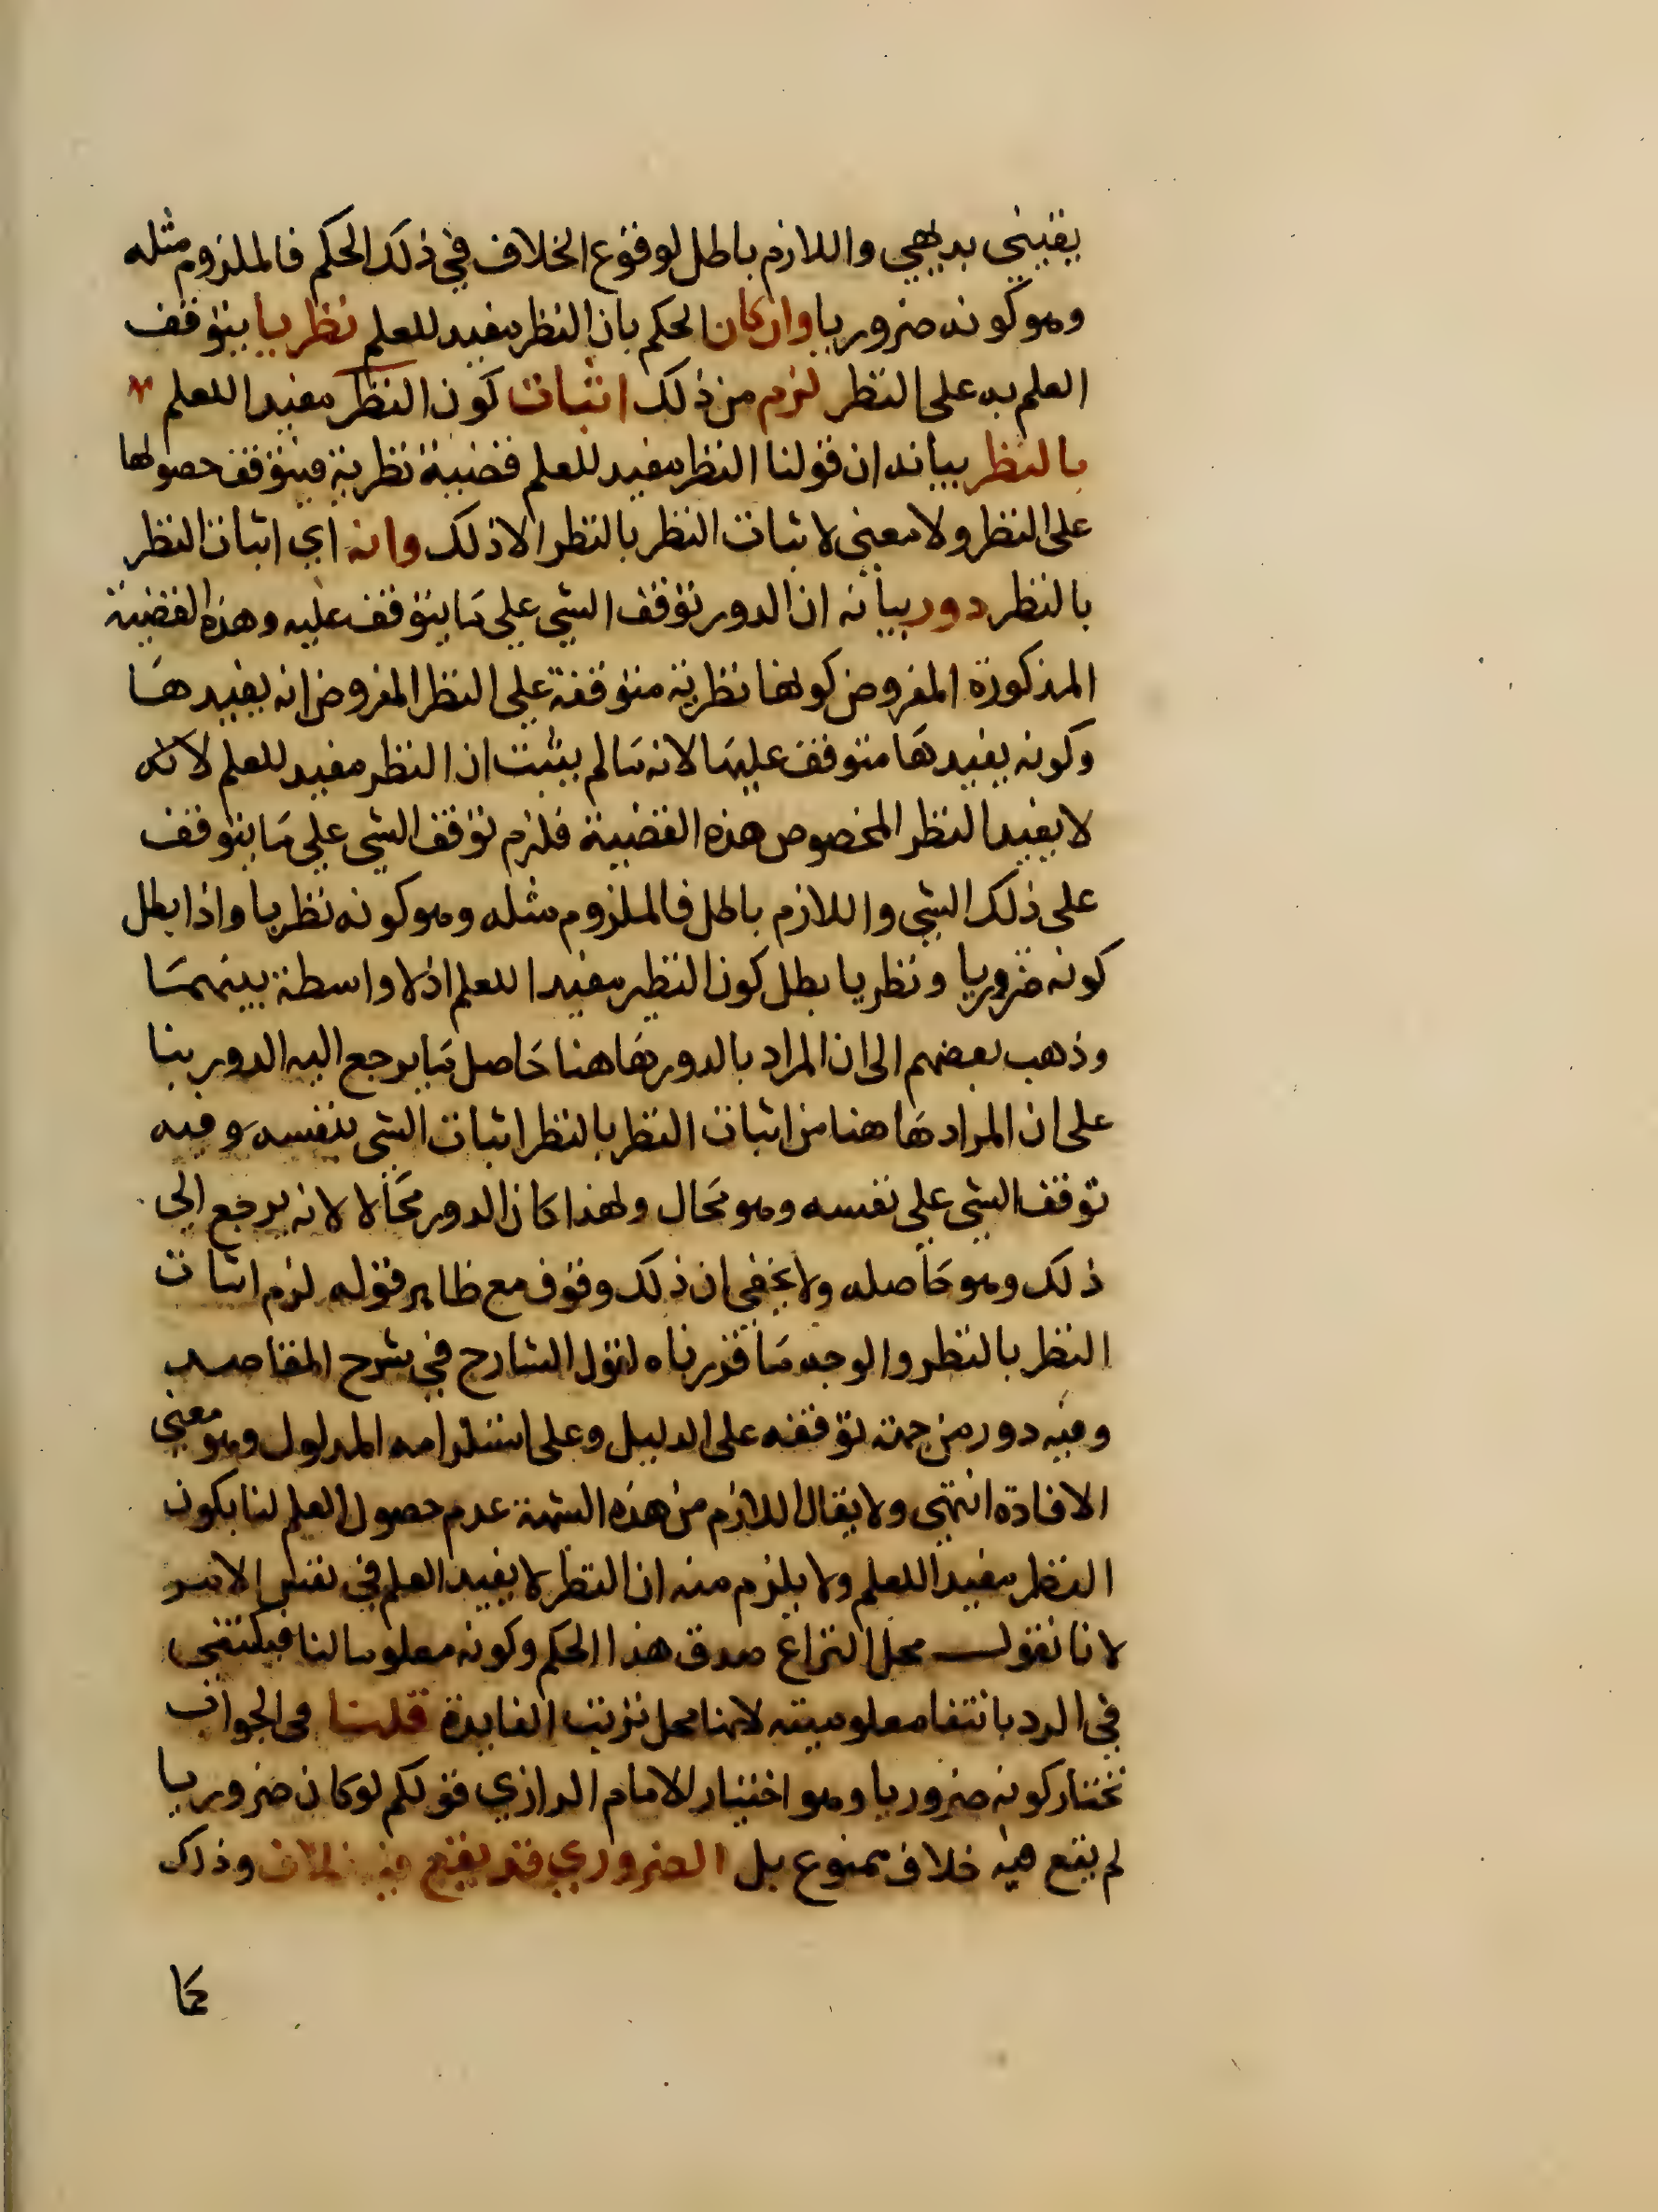 يقيني بديهي واللازم باطل لوقوع الخلاف في ذلك الحكم فالملزوم مثله
وهو كونه ضروريا وان كان الحكم بان النظر مفيد للعلم نظريا يتوقف
العلم به على النظر لزم من ذلك اثبات كون النظر مفيدا للعلم
بالنظر بيانه ان قولنا النظر مفيد للعلم قضية نظرية فيتوقف حصولها
على النظر ولا معنى لاثبات النظر بالنظر الا ذلك وانه اي اثبات النظر
بالنظر دور بيانه ان الدور توقف الشي على ما يتوقف عليه وهذه القضية
المذكورة المفروض كونها نظرية متوقفة على النظر المفروض انه يفيدها
وكونه يفيدها متوقف عليها لانه ما لم يثبت ان النظر مفيد للعلم لانه
لا يفيد النظر المخصوص هذه القضية فلزم توقف الشي على ما يتوقف
على ذلك الشي واللازم باطل فالملزوم مثله وهو كونه نظريا واذا بطل
كونه ضروريا ونظريا بطل كون النظر مفيدا للعلم اذ لا واسطة بينهما
وذهب بعضهم الى ان المراد بالدور هاهنا حاصل ما يرجع اليه الدور بنا
على ان المراد هاهنا من اثبات النظر بالنظر اثبات الشي بنفسه وفيه
توقف الشي على نفسه وهو محال ولهذا كان الدور محالا لانه يرجع الى
ذلك وهو حاصله ولا يخفى ان ذلك وقوف مع ظاهر قوله لزم اثبات
النظر بالنظر والوجه ما قررناه لقول الشارح في شرح المقاصد
وفيه دور من جهة توقفه على الدليل وعلى استلزامه المدلول وهو معنى
الافادة انتهى ولا يقال اللازم من هذه الشبهة عدم حصول العلم لنا بكون
النظر مفيدا للعلم ولا يلزم منه ان النظر لا يفيد العلم في نفس الامر
لانا نقول محل النزاع صدق هذا الحكم وكونه معلوما لنا فيكتفى
في الرد بانتفا معلوميته لانها محل ترتب الفايدة قلنا في الجواب
نختار كونه ضروريا وهو اختيار للامام الرازي قولكم لو كان ضروريا
لم يقع فيه خلاف ممنوع بل الضروري قد يقع فيه خلاف وذلك
كما